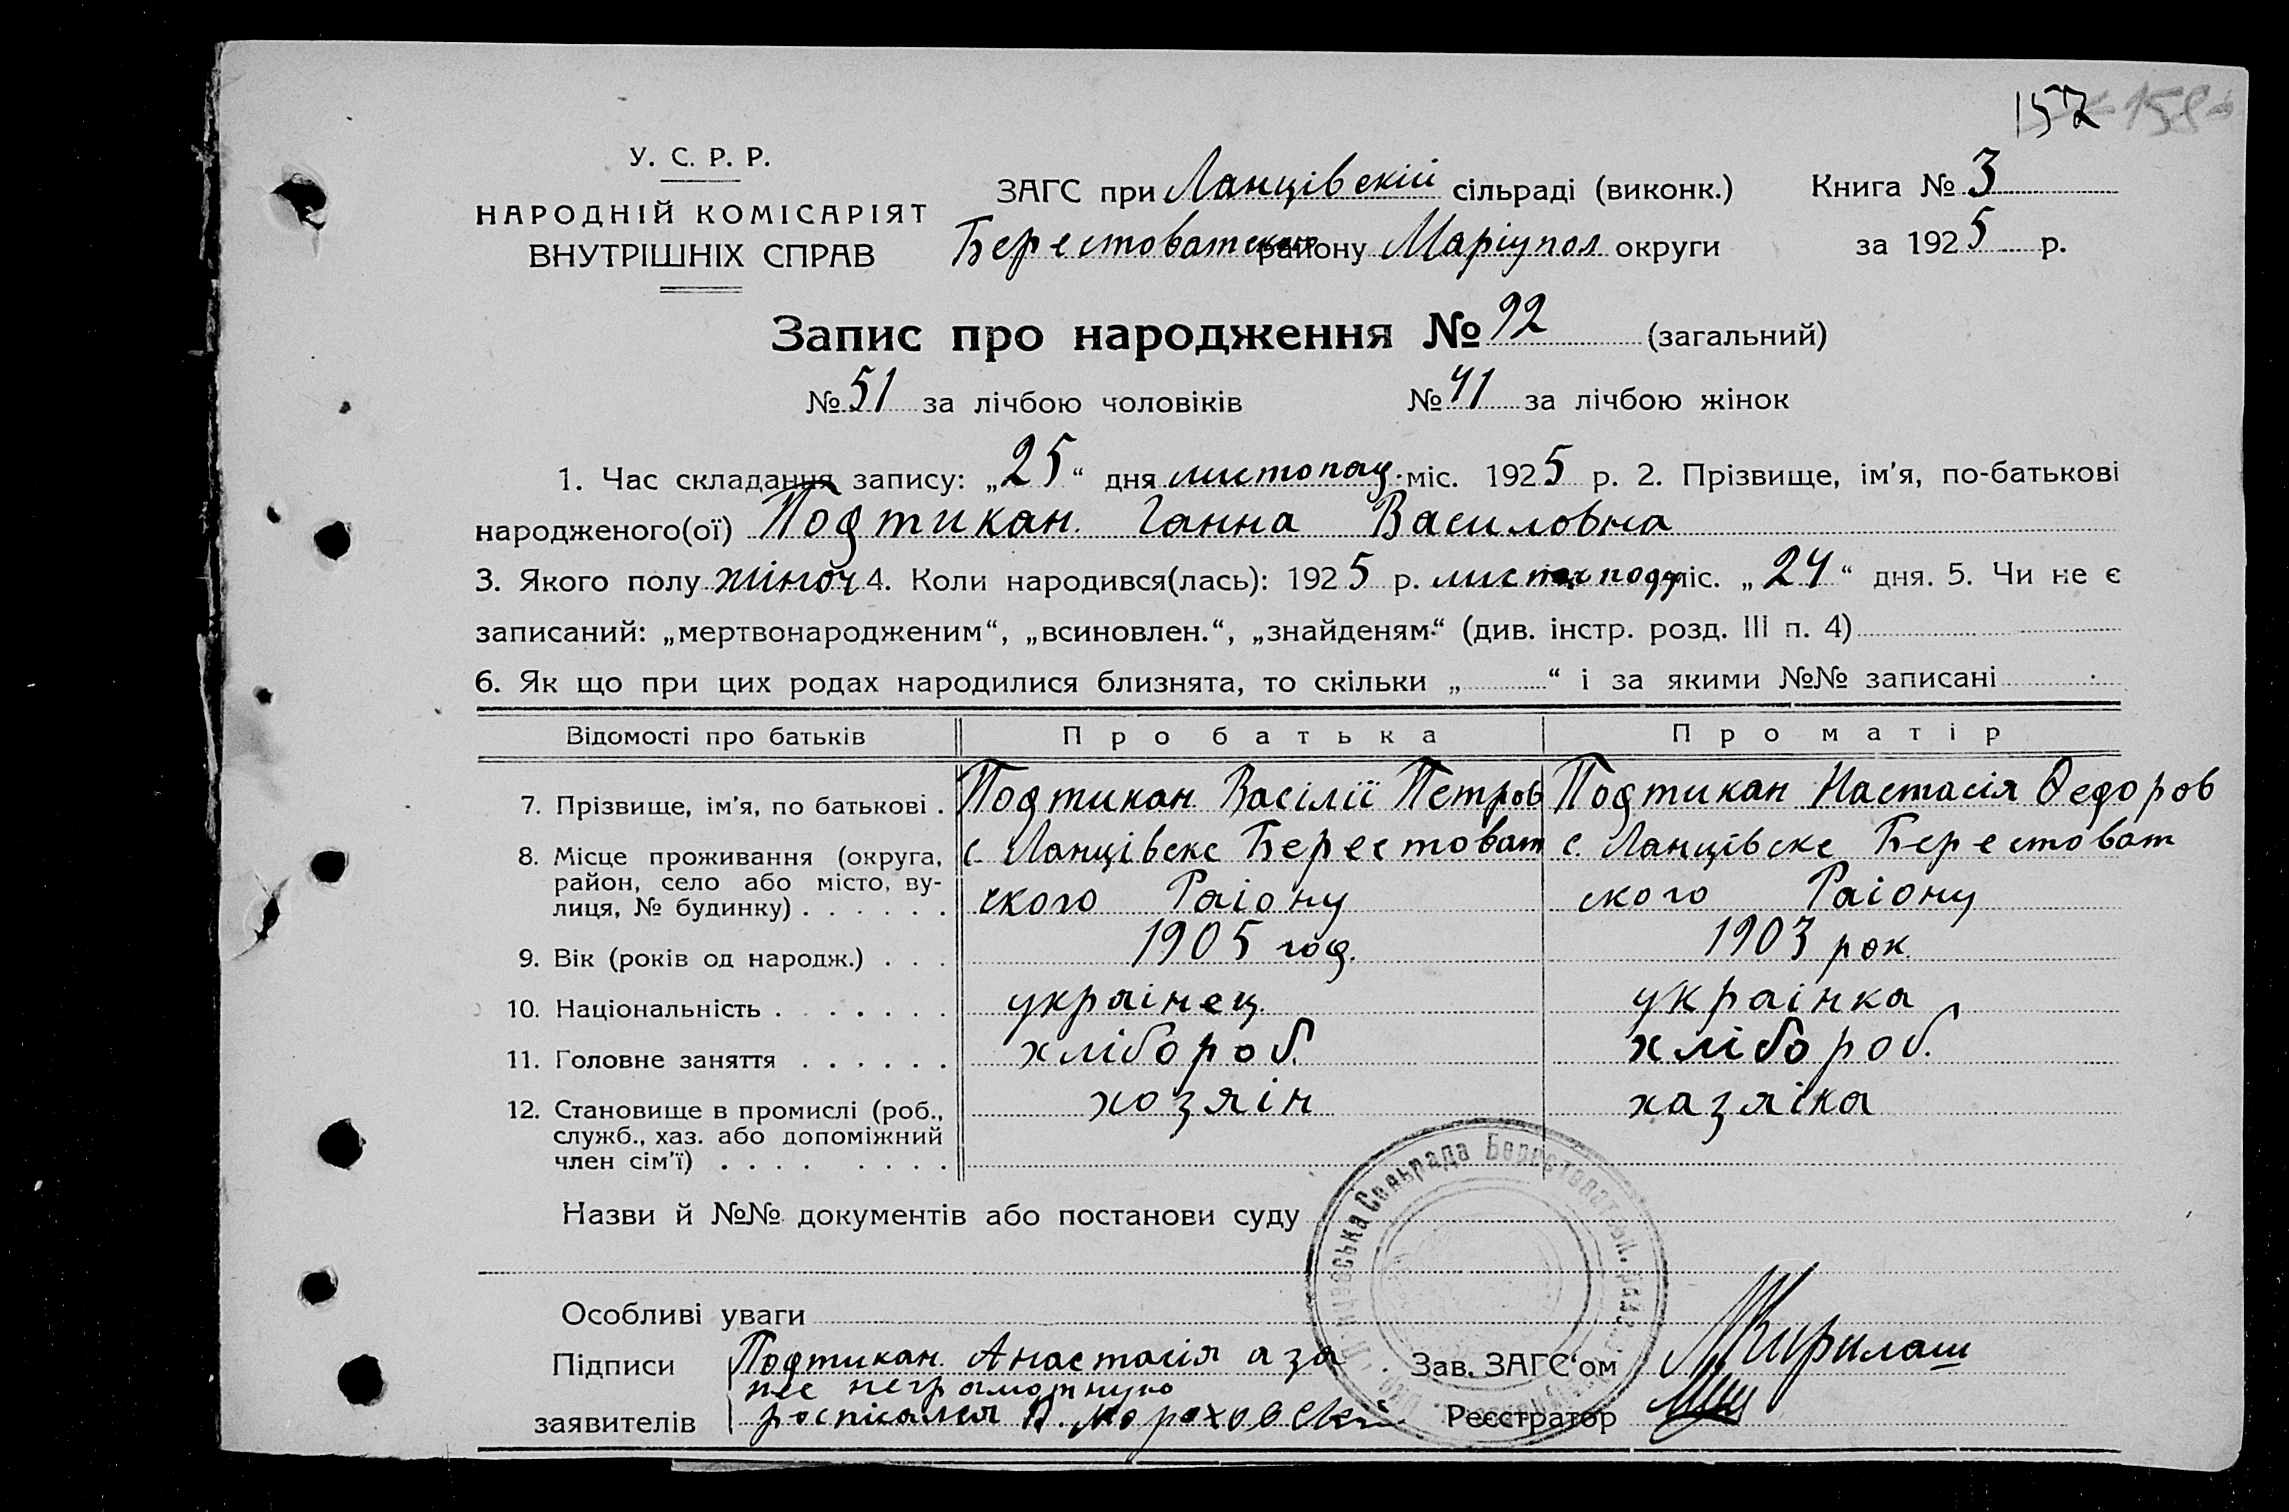 152 158
У. С. Р. Р.
НАРОДНІЙ КОМІСАРІЯТ
ВНУТРІШНІХ СПРАВ
ЗАГС при Ланцівскій сільраді (виконк.) Книга № 3
Берестоватском району Маріупол округи за 1925 р.
Запис про народження № 92 (загальний)
№ 51 за лічбою чоловіків № 41 за лічбою жінок
1. Час складання запису: „25“ дня листопад. міс. 1925 р. 2. Прізвище, ім'я, по-батькові
народженого(ої) Подтикан Ганна Василовна
3. Якого полу жіноч 4. Коли народився(лась): 1925 р. міс. „24“ дня. 5. Чи не є
записаний: „мертвонародженим“, „всиновлен.“, „знайденям“ (див. інстр. розд. III п. 4)
6. Як що при цих родах народилися близнята, то скільки „ “ і за якими №№ записані
Відомості про батьків Про батька Про матір
7. Прізвище, ім'я, по батькові . Подтикан Васілії Петров Подтикан Настасія Федоров
8. Місце проживання (округа, район, село або місто, вулиця, № будинку) . . . . . . с. Ланцівске Берестоват с. Ланцівске Берестоват
ского Раіону ского Раіону
9. Вік (років од народж.) . . . 1905 год. 1903 рок.
10. Національність . . . . . . . украінец украінка
11. Головне заняття . . . . . . хлібороб. хлібороб.
12. Становище в промислі (роб., служб., хаз. або допоміжний член сім'ї) . . . . . . . . хозяін хазяіка
Назви й №№ документів або постанови суду
Особливі уваги
Підписи Подтикан Анастасія а за
нее неграмотную
заявителів роспісался Мороховскі
Зав. ЗАГС'ом
Реєстратор
Сельрада